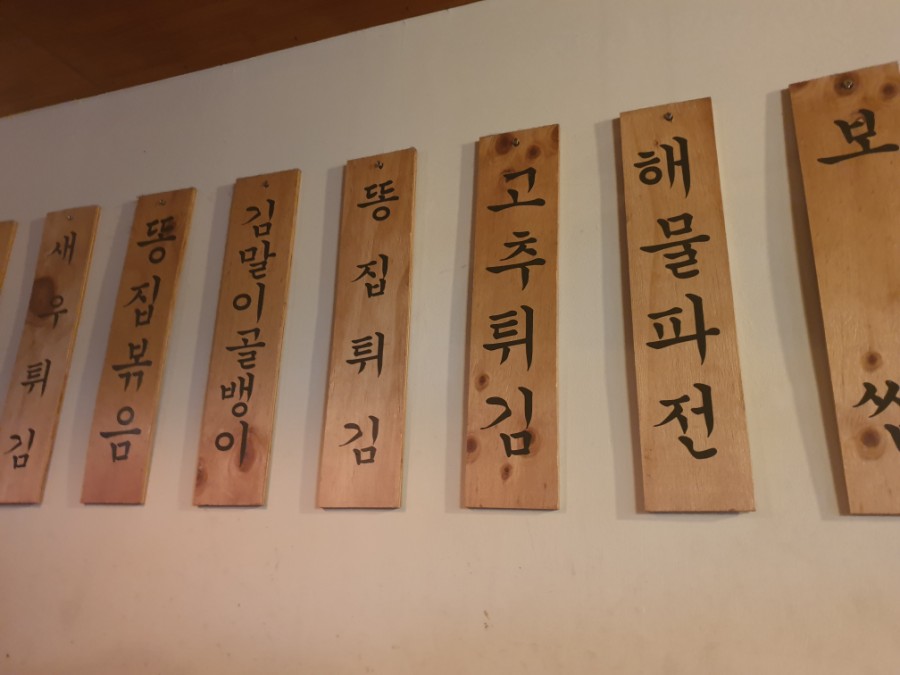 새우튀김
똥집볶음
김말이골뱅이
똥집튀김
고추튀김
해물파전
보쌈